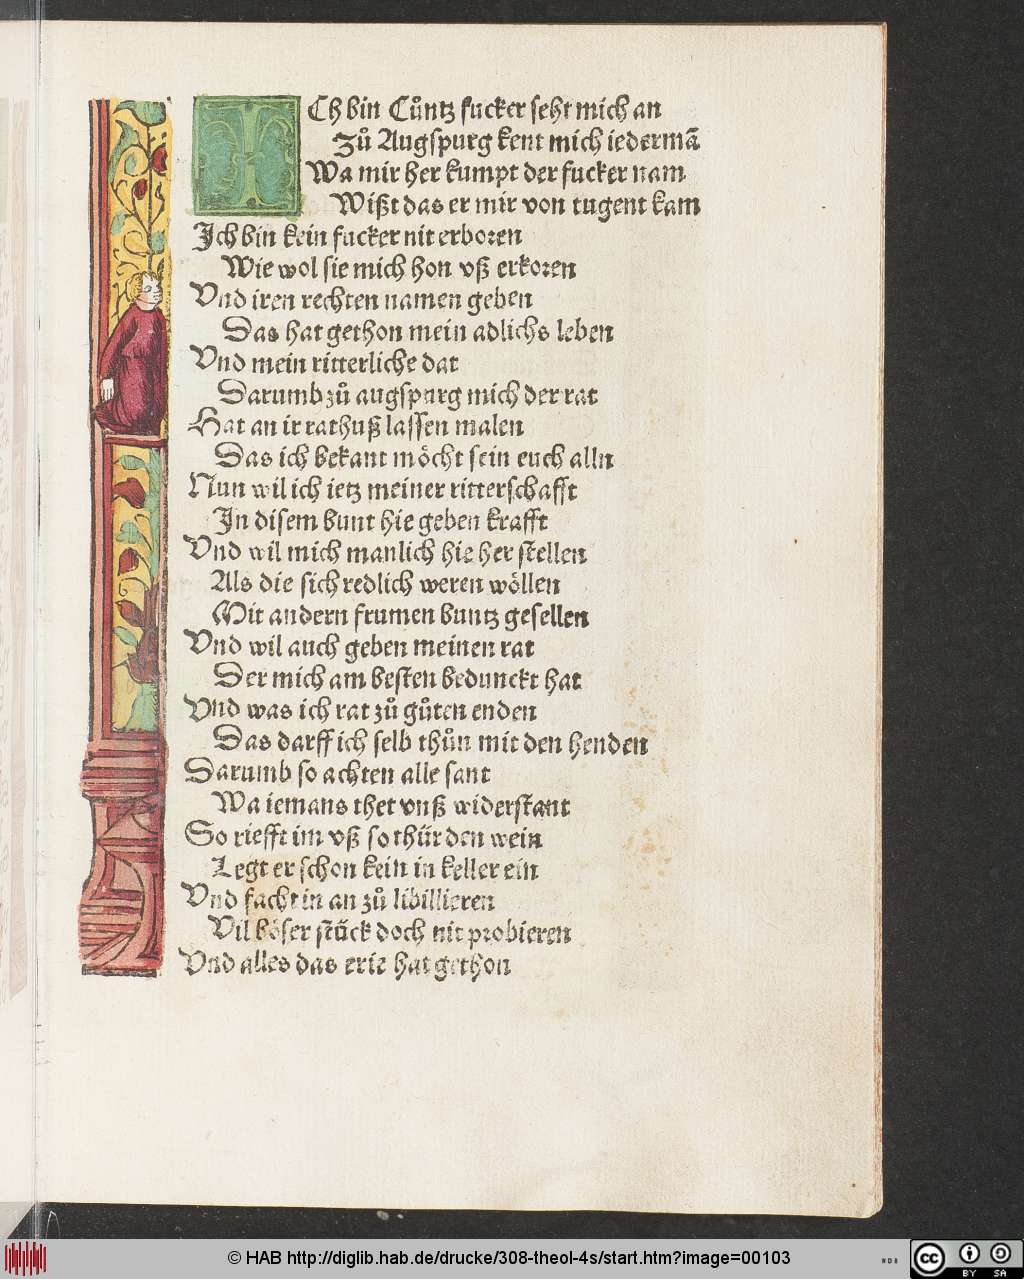 ICh bin Cůntz fucker seht mich an
Zů Augspurg kent mich iedermã
Wa mir her kumpt der fucker nam
Wißt das er mir von tugent kam
Ich bin kein fucker nit erboren
Wie wol sie mich hon vß erkoren
Vnd iren rechten namen geben
Das hat gethon mein adlichs leben
Vnd mein ritterliche dat
Darumb zů augspurg mich der rat
Hat an ir rathuß lassen malen
Das ich bekant möcht sein euch alln
Nun wil ich ietz meiner ritterschafft
In disem bunt hie geben krafft
Vnd wil mich manlich hie her stellen
Als die sich redlich weren wöllen
Mit andern frumen buntz gesellen
Vnd wil auch geben meinen rat
Der mich am besten bedunckt hat
Vnd was ich rat zů gůten enden
Das darff ich selb thůn mit den henden
Darumb so achten alle sant
Wa iemans thet vnß widerstant
So riefft im vß so thür den wein
Legt er schon kein in keller ein
Vnd facht in an zů libillieren
Vil böser stück doch nit probieren
Vnd alles das erie hat gethon
© HAB http://diglib.hab.de/drucke/308-theol-4s/start.htm?image=00103
WDB
cc BY SA